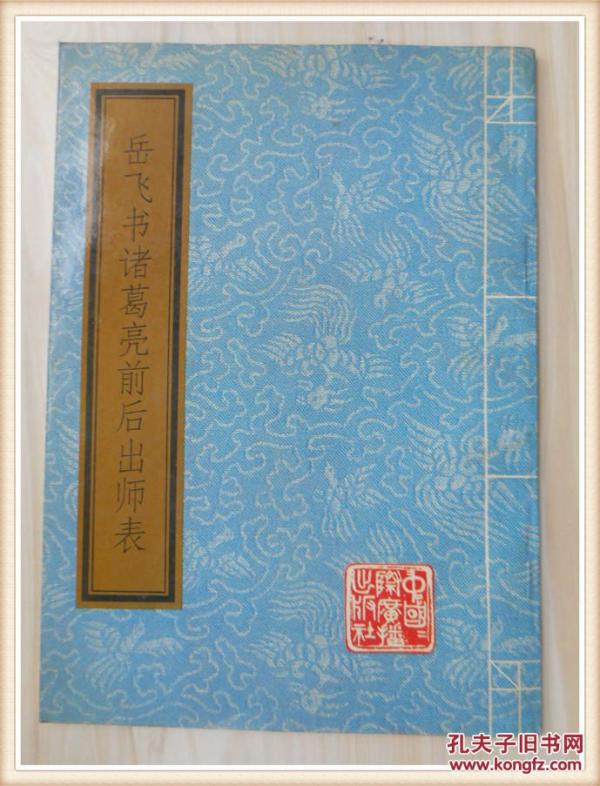 岳飞书诸葛亮前后出师表
中國〻
際廣播
出版社
孔夫子旧书网
www.kongfz.com